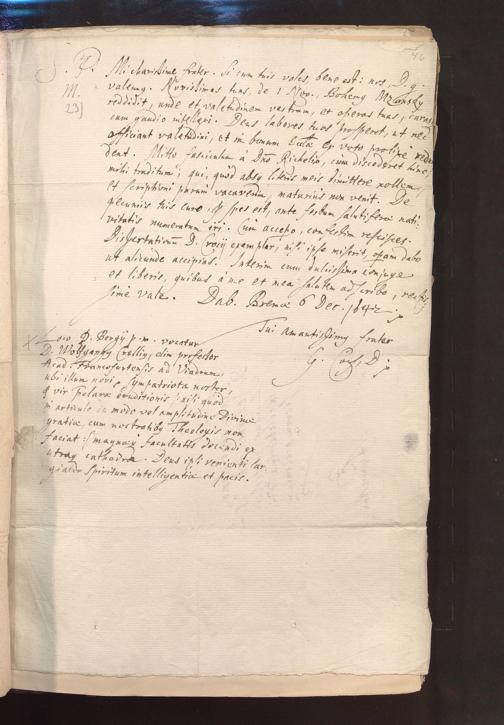 46
S. P. Mi charissime frater. Si cum tuis vales, bene est: nos, D. g.
M. valemus. Novissimas tuas, de 1 Nov., Bohemus
23) reddidit, unde et valetudinem vestram, et operas tuas,
cum gaudio intellexi. Deus labores tuos prosperet, ut nec
officiant valetudini, et in bonum Eccliæ ex voto prolixe
dent. Mitto fasciculum à Dno Richelio, cum discederet hinc,
mihi traditum; qui, quod absq literis meis dimittere nollem,
et scriptioni parum vacarem, maturius non venit. De
pecuniis tuis spes est, ante festum salutiferæ nati-
vitatis numeratum iri. Cum accepo, confestim rescisces.
Dissertationum D. Crocij exemplar, nisi ipse miserit, dabo
ut aliunde accipias. Interim cum dulcissima conjuge
et liberis, quibus à me et mea salutem adscribo,
sime vale. Dab. Bremæ 6 Dec. 1642.
Tui amantissimus frater
Loco D. Bergij p.m. vocatur
D. Wolfgangus Crellius, olim professor
Acad. Francofurtensis ad Viadrum,
ubi illum novit sympatriota noster,
vir præclaræ eruditionis: nisi quod
in articulo de modo vel amplitudine Divinæ
gratiæ, cum nostratibus Theologis non
faciat: magnæq facultatis docendi ex
utraq cathedra. Deus ipsi venienti lar-
giatur spiritum intelligentiæ et pacis.